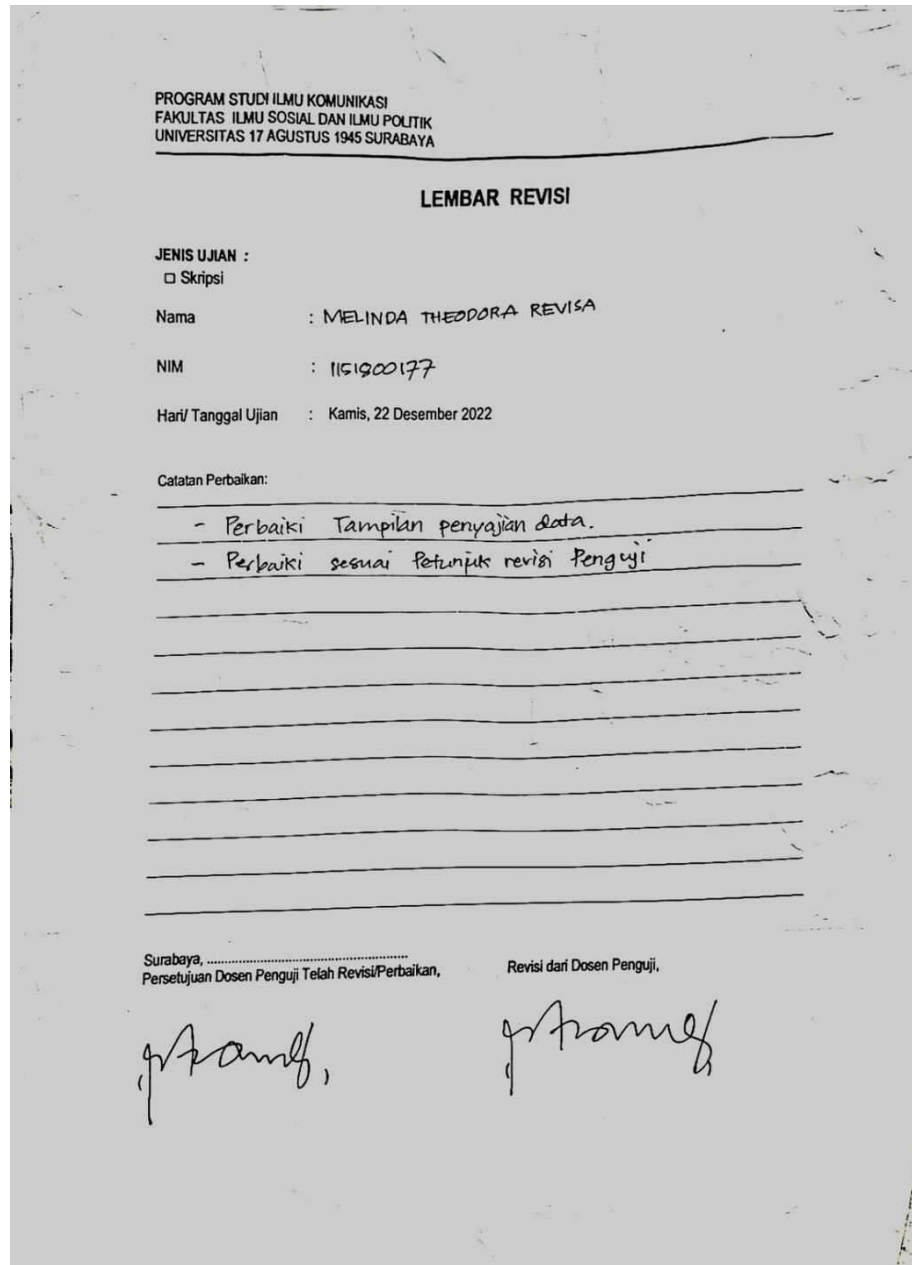 PROGRAM STUDI ILMU KOMUNIKASI
FAKULTAS ILMU SOSIAL DAN ILMU POLITIK
UNIVERSITAS 17 AGUSTUS 1945 SURABAYA
LEMBAR REVISI
JENIS UJIAN :
□ Skripsi
Nama : MELINDA THEODORA REVISA
NIM : 1151900177
Hari/ Tanggal Ujian : Kamis, 22 Desember 2022
Catatan Perbaikan:
- Perbaiki Tampilan penyajian data.
- Perbaiki sesuai Petunjuk revisi Penguji
Surabaya, ......................................................
Persetujuan Dosen Penguji Telah Revisi/Perbaikan,
Revisi dari Dosen Penguji,